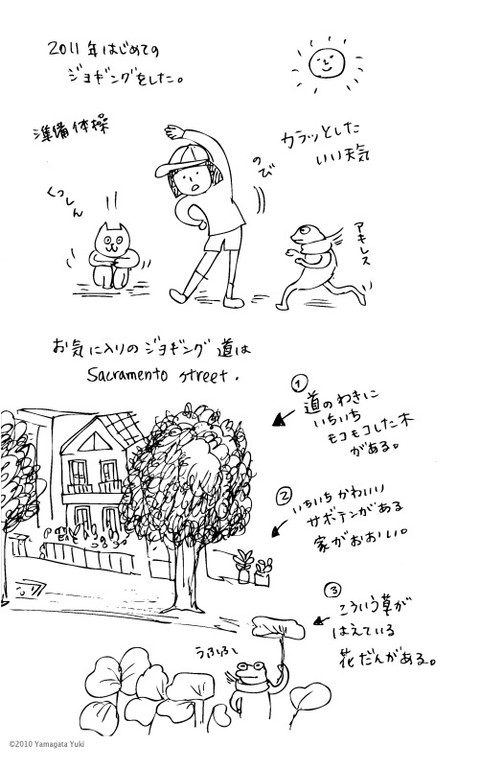 2011年はじめての
ジョギングをした。
準備体操
カラッとした
いい天気
のび
くっしん
アキレス
お気に入りのジョギング道は
Sacramento street.
①
道のわきに
いちいち
モコモコした木
がある。
②
いちいちかわいい
サボテンがある
家がおおい。
③
こういう草が
はえている
花だんがある。
うふふふ
©2010 Yamagata Yuki